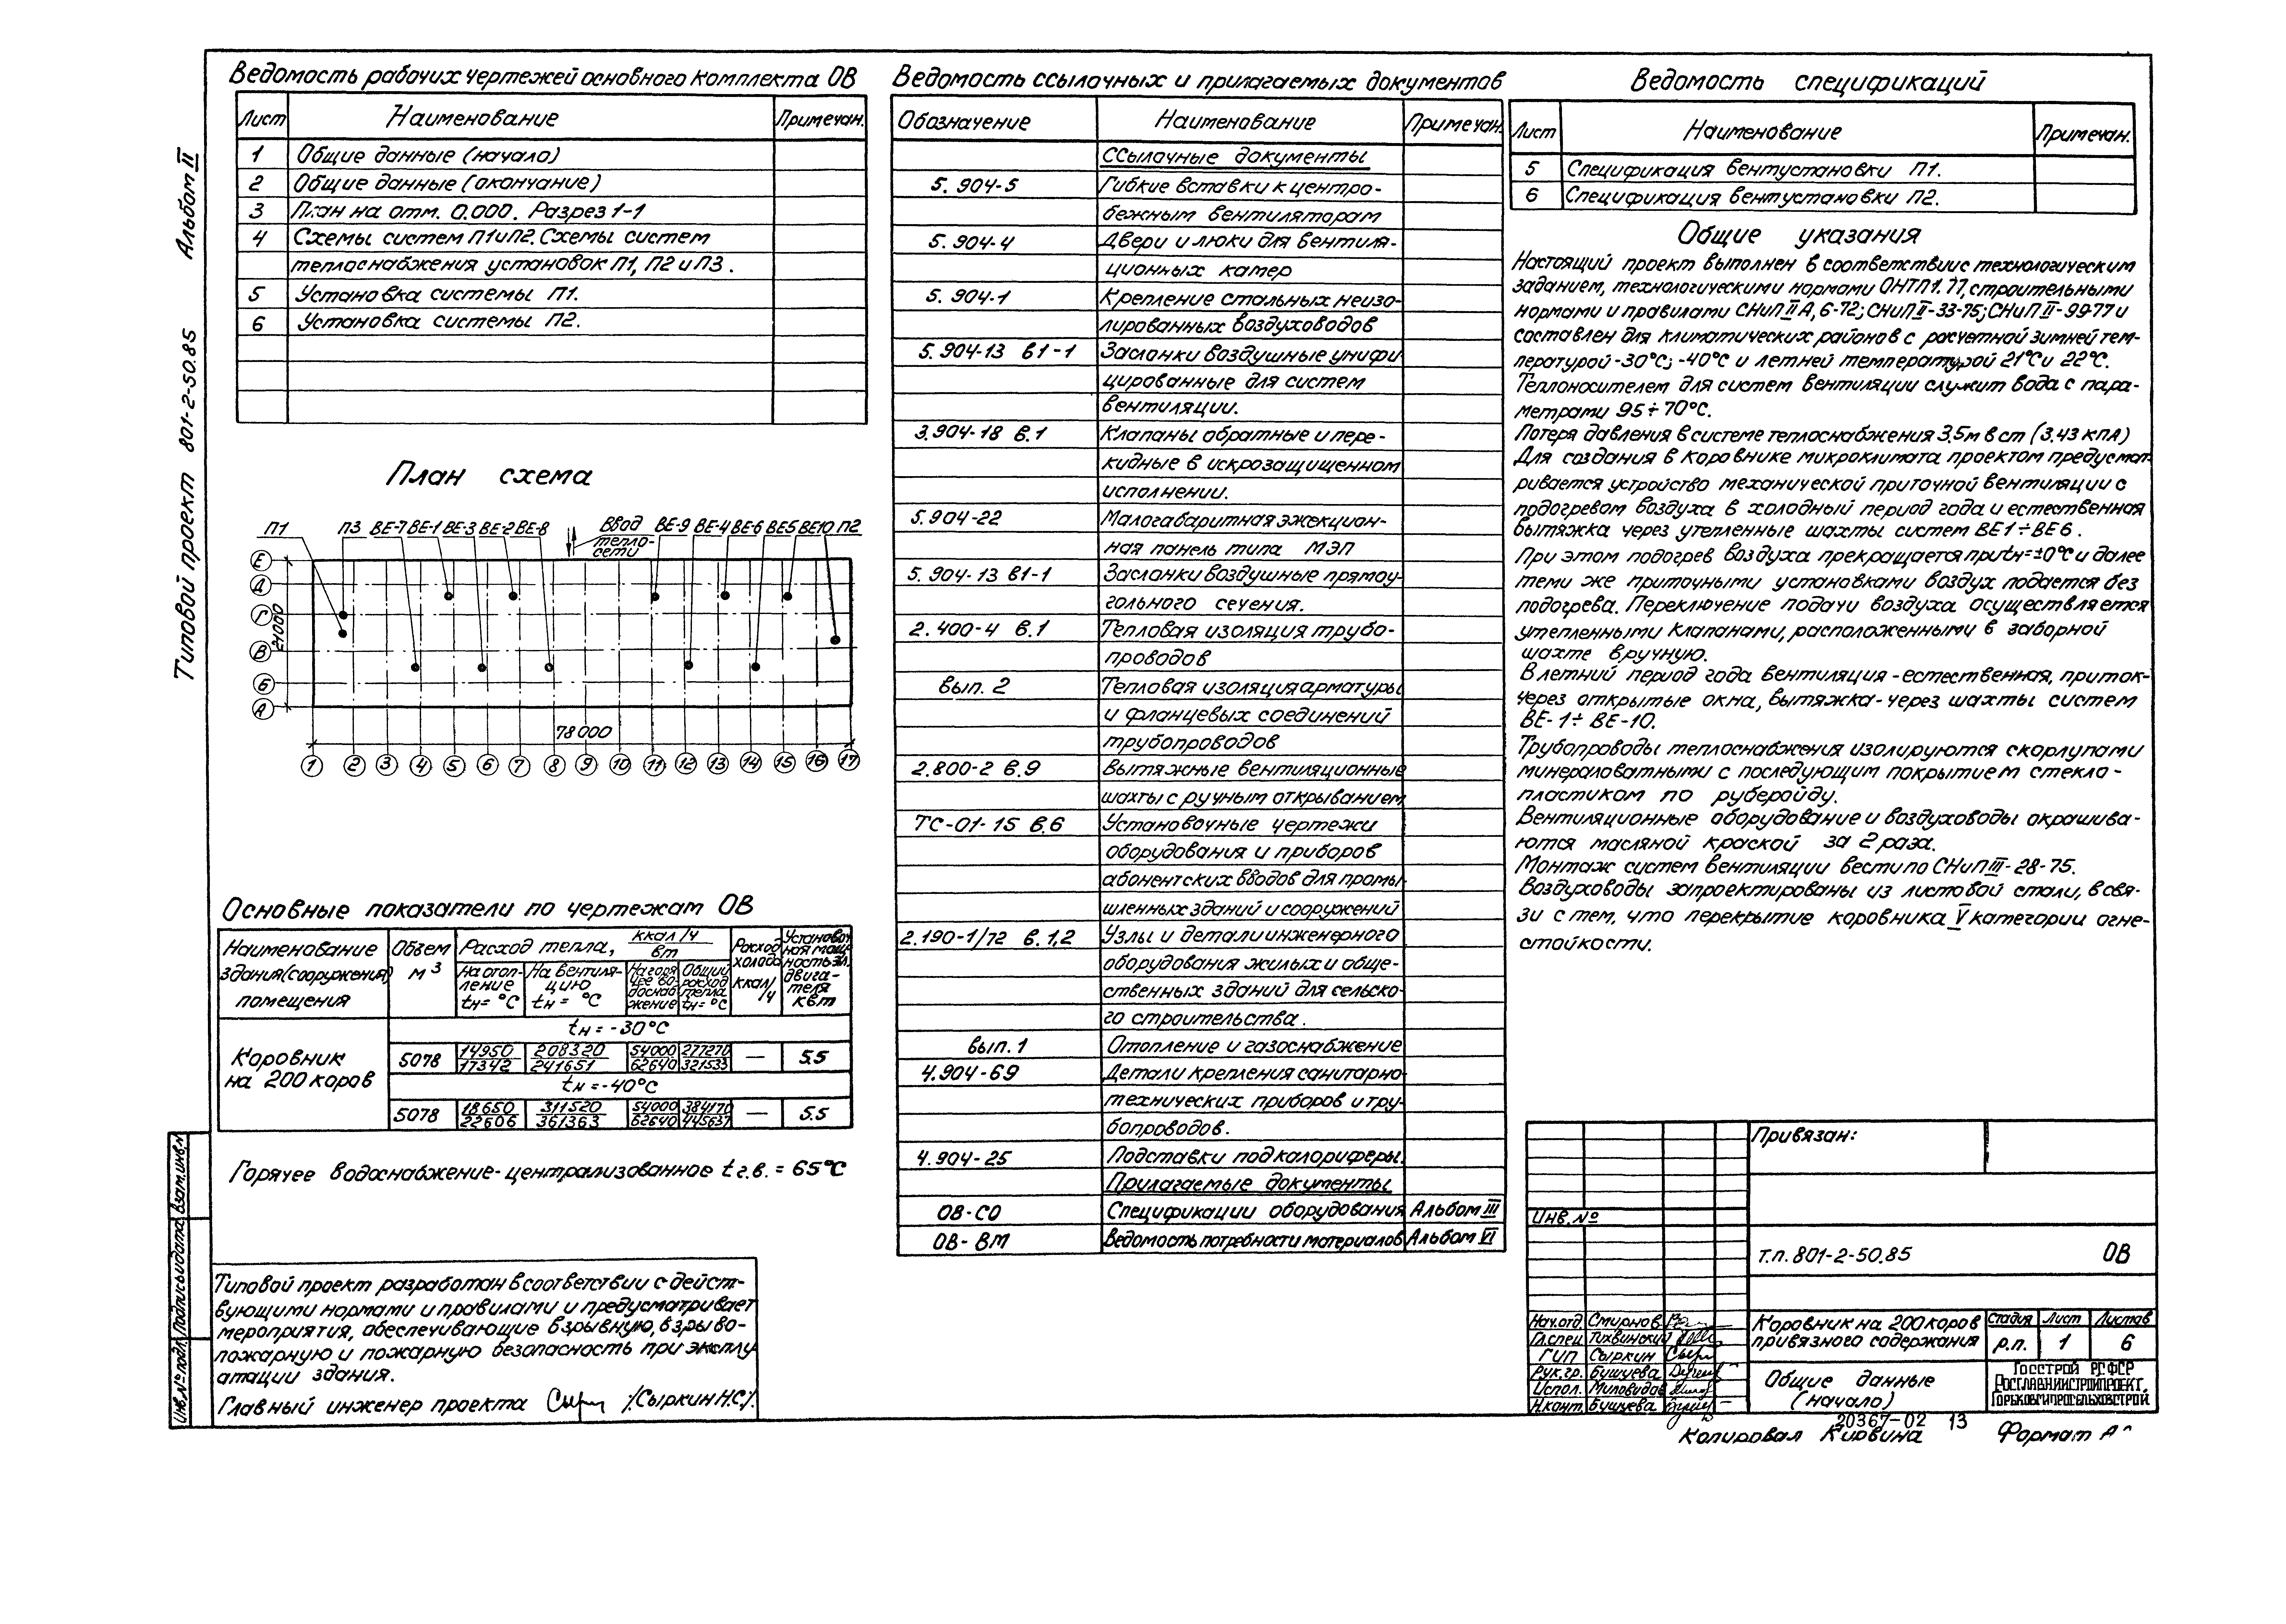 Альбом II
Типовой проект 801-2-50.85
Ведомость рабочих чертежей основного комплекта ОВ
Лист Наименование Примечан.
1 Общие данные (начало)
2 Общие данные (окончание)
3 План на отм. 0.000. Разрез 1-1
4 Схемы систем П1 и П2. Схемы систем
теплоснабжения установок П1, П2 и П3.
5 Установка системы П1.
6 Установка системы П2.
План схема
П1 П3 ВЕ-7 ВЕ-1 ВЕ-3 ВЕ-2 ВЕ-8 Ввод ВЕ-9 ВЕ-4 ВЕ-6 ВЕ5 ВЕ10 П2
тепло-
сети
Е
Д
Г
В
Б
А
21000
78000
1 2 3 4 5 6 7 8 9 10 11 12 13 14 15 16 17
Основные показатели по чертежам ОВ
Наименование здания (сооружения) помещения
Объем м3
Расход тепла, ккал/ч вт
На отопление tн= °С
На вентиляцию tн = °С
На горячее водоснабжение
Общий расход тепла tн= °С
Расход холода ккал/ч
Установочная мощность эл. двигателя квт
tн = -30°С
Коровник
на 200 коров
5078 14950/17342 208320/241651 54000/62640 277270/321533 — 5.5
tн = -40°С
5078 18650/22606 311520/361363 54000/62640 384170/445637 — 5.5
Горячее водоснабжение-централизованное t г.в. = 65°С
Типовой проект разработан в соответствии с дейст-
вующими нормами и правилами и предусматривает
мероприятия, обеспечивающие взрывную, взрыво-
пожарную и пожарную безопасность при эксплу
атации здания.
Главный инженер проекта /Сыркин Н.С/.
Взам.инв.№
Подпись и дата
Инв.№ подл.
Ведомость ссылочных и прилагаемых документов
Обозначение Наименование Примечан.
Ссылочные документы
5. 904-5 Гибкие вставки к центро-
бежным вентиляторам
5. 904-4 Двери и люки для вентиля-
ционных камер
5. 904-1 Крепление стальных неизо-
лированных воздуховодов
5. 904-13 в1-1 Заслонки воздушные унифи
цированные для систем
вентиляции.
3.904-18 в.1 Клапаны обратные и пере-
кидные в искрозащищенном
исполнении.
5.904-22 Малогабаритная эжекцион-
ная панель типа МЭП
5. 904-13 в1-1 Заслонки воздушные прямоу-
гольного сечения.
2.400-4 в.1 Тепловая изоляция трубо-
проводов
вып. 2 Тепловая изоляция арматуры
и фланцевых соединений
трубопроводов
2.800-2 в.9 Вытяжные вентиляционные
шахты с ручным открыванием
ТС-01-15 в.6 Установочные чертежи
оборудования и приборов
абонентских вводов для промы-
шленных зданий и сооружений
2.190-1/72 в.1,2 Узлы и детали инженерного
оборудования жилых и обще-
ственных зданий для сельско-
го строительства.
вып. 1 Отопление и газоснабжение
4.904-69 Детали крепления санитарно-
технических приборов и тру-
бопроводов.
4.904-25 Подставки под калориферы.
Прилагаемые документы
ОВ-СО Спецификации оборудования Альбом III
ОВ-ВМ Ведомость потребности материалов Альбом VI
Ведомость спецификаций
Лист Наименование Примечан.
5 Спецификация вентустановки П1.
6 Спецификация вентустановки П2.
Общие указания
Настоящий проект выполнен в соответствии с технологическим
заданием, технологическими нормами ОНТП1.77, строительными
нормами и правилами СНиП II А, 6-72; СНиП II-33-75; СНиП II-99-77 и
составлен для климатических районов с расчетной зимней тем-
пературой -30°С; -40°С и летней температурой 21°С и 22°С.
Теплоносителем для систем вентиляции служит вода с пара-
метрами 95÷70°С.
Потеря давления в системе теплоснабжения 3,5м в ст (3,43 кПа)
Для создания в коровнике микроклимата проектом предусмат-
ривается устройство механической приточной вентиляции с
подогревом воздуха в холодный период года и естественная
вытяжка через утепленные шахты систем ВЕ1÷ВЕ6.
При этом подогрев воздуха прекращается при tн=±0°С и далее
теми же приточными установками воздух подается без
подогрева. Переключение подачи воздуха осуществляется
утепленными клапанами, расположенными в заборной
шахте вручную.
В летний период года вентиляция-естественная, приток-
через открытые окна, вытяжка-через шахты систем
ВЕ-1÷ ВЕ-10.
Трубопроводы теплоснабжения изолируются скорлупами
минераловатными с последующим покрытием стекло-
пластиком по рубероиду.
Вентиляционные оборудование и воздуховоды окрашива-
ются масляной краской за 2 раза.
Монтаж систем вентиляции вести по СНиП III-28-75.
Воздуховоды запроектированы из листовой стали, в свя-
зи с тем, что перекрытие коровника V категории огне-
стойкости.
Привязан:
Инв.№
т.п. 801-2-50.85 ОВ
Нач.отд. Смирнов
Гл.спец. Тихвинский
ГИП Сыркин
Рук.гр. Бушуева
Испол. Миловидов
Н.конт. Бушуева
Коровник на 200 коров
привязного содержания
Стадия Лист Листов
р.п. 1 6
Общие данные
(начало)
Госстрой РСФСР
Росглавниистройпроект
Горьковгипросельхозстрой
20367-02 13
Копировал Формат А